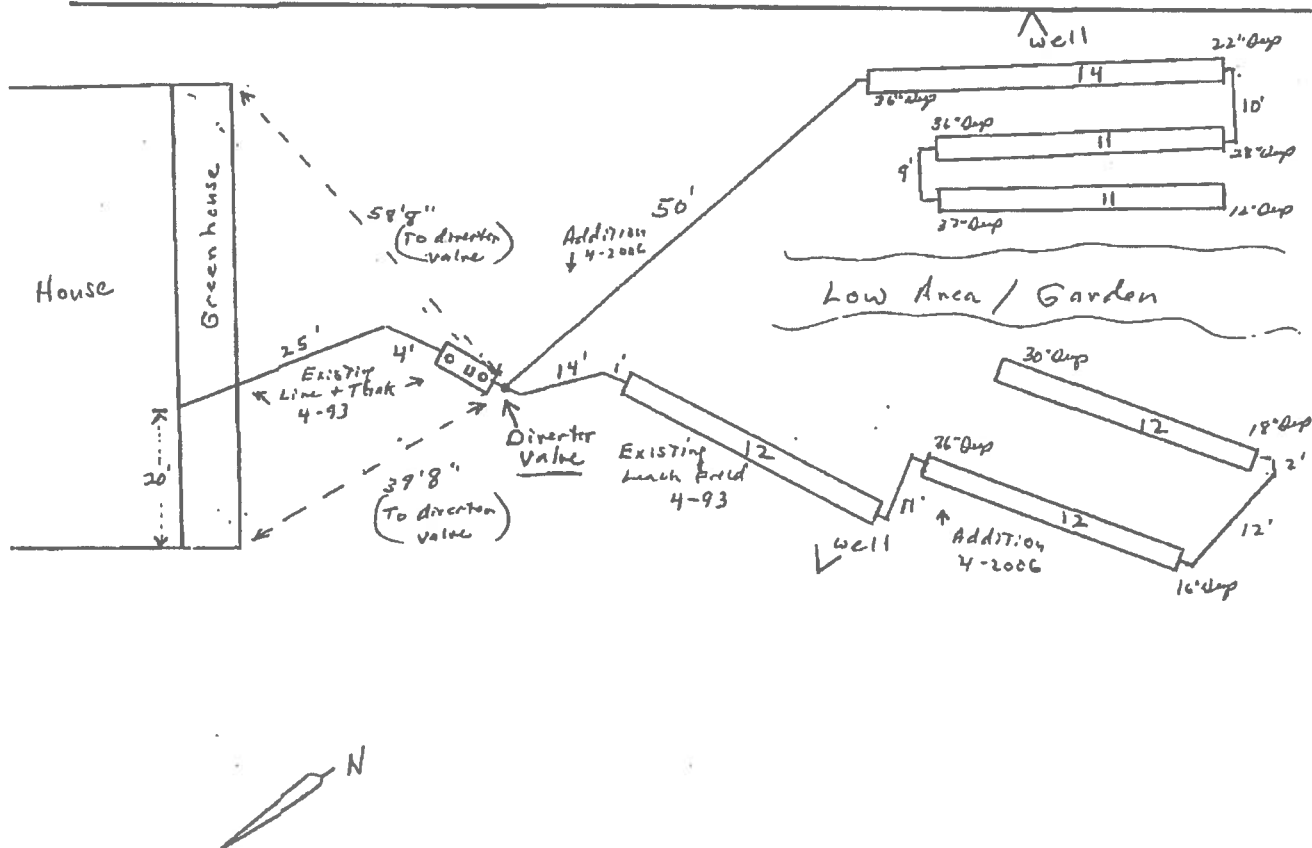 well
22" Deep
14
36" Deep
10'
36" Deep
11
28" Deep
9'
11
37" Deep
12" Deep
House
Greenhouse
58'8"
(To diverter
valve)
Addition
4-2006
50'
Low Area / Garden
25'
4'
Existing
Line + Tank
4-93
20'
14'
1'
Diverter
Valve
39'8"
(To diverter
valve)
12
Existing
Leach Field
4-93
30" Deep
12
18" Deep
2'
36" Deep
11'
12
12'
Addition
4-2006
well
16" Deep
N